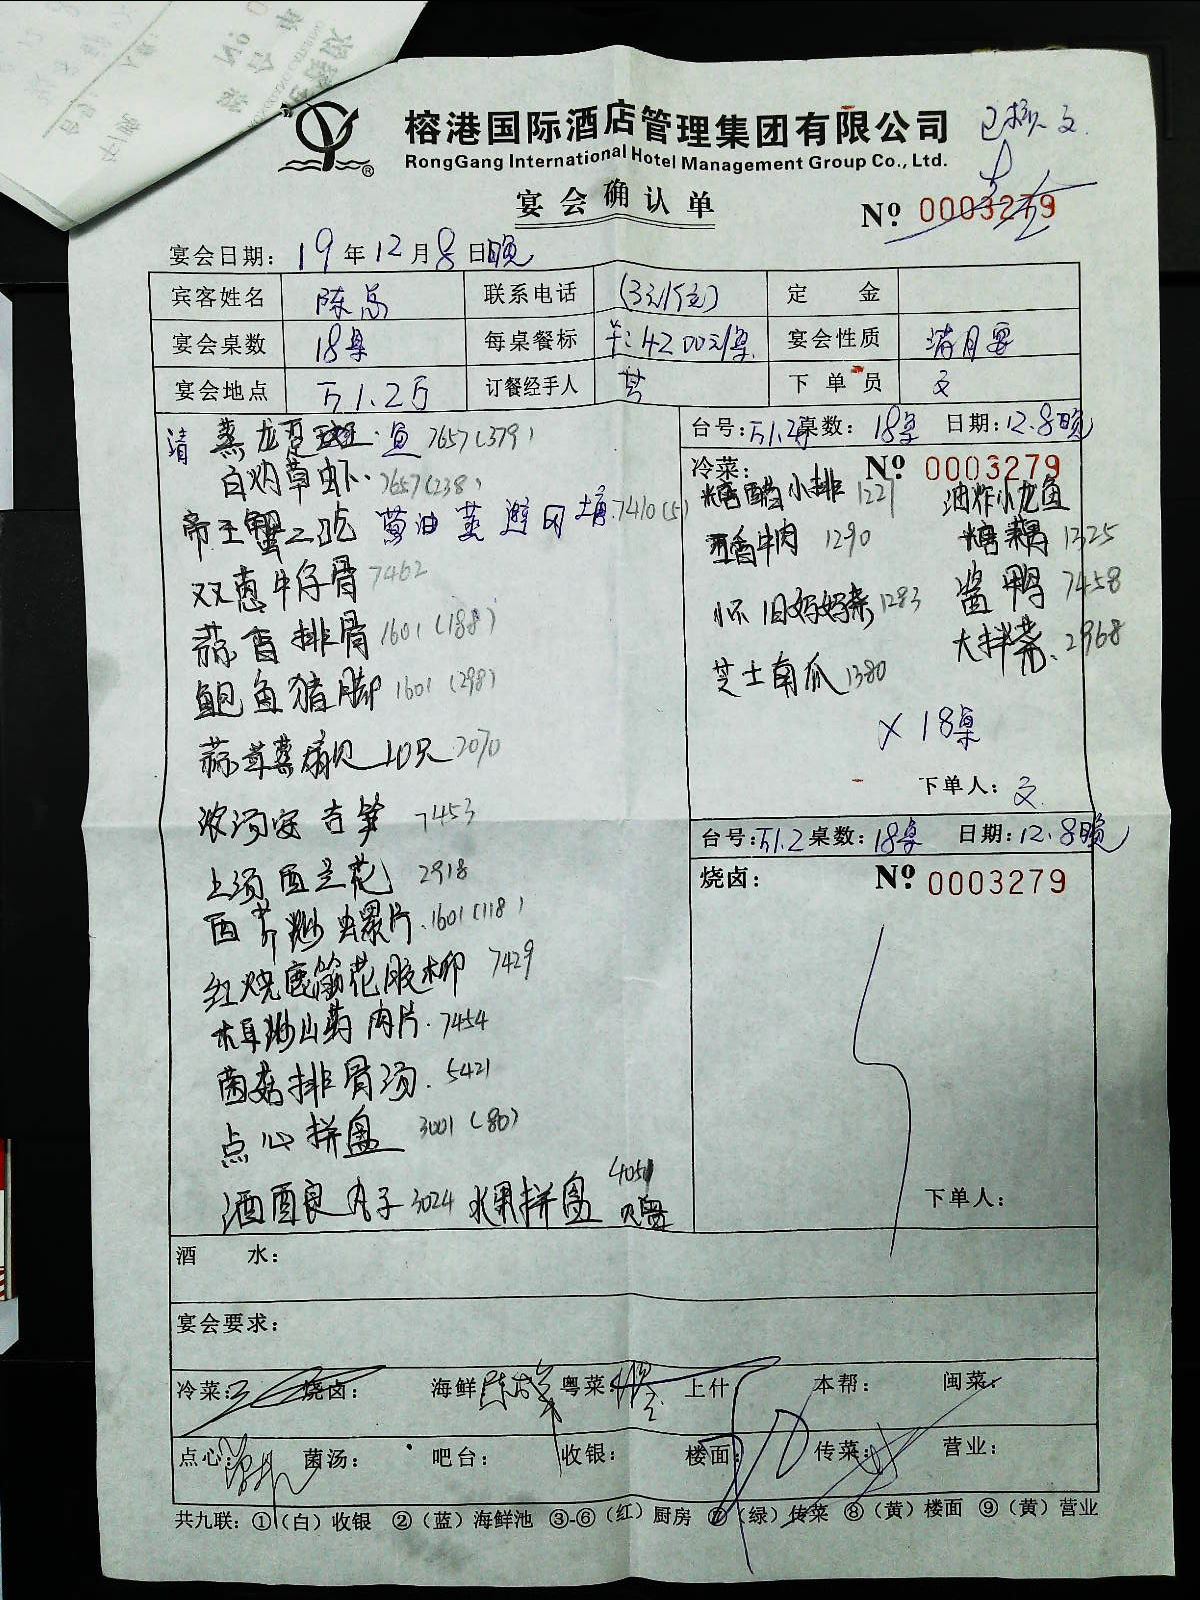 榕港国际酒店管理集团有限公司 已核
RongGang International Hotel Management Group Co., Ltd.
宴会确认单
Nº 0003279
宴会日期：19年12月8日晚
宾客姓名 陈总 联系电话 (3元/位) 定金
宴会桌数 18桌 每桌餐标 羊:4200元/桌 宴会性质 满月宴
宴会地点 万1.2万 订餐经手人 下单员 文
清蒸龙趸斑鱼 7657(379)
白灼草虾. 7657(238)
帝王蟹二吃 葱油蒸 避风塘 7410(5)
双葱牛仔骨 7462
蒜香排骨 1601(188)
鲍鱼猪脚 1601(298)
蒜茸蒸扇贝 10只 2070
浓汤安吉笋 7453
上汤西兰花 2918
西芹炒螺片. 1601(118)
红烧鹿筋花胶柳 7429
木耳炒山药肉片. 7454
菌菇排骨汤. 5421
点心拼盘 3001(80)
酒酿丸子 3024 水果拼盘 4051
台号：万1.2 桌数：18桌 日期：12.8晚
冷菜： Nº 0003279
糖醋小排 1227 油炸小龙鱼
五香牛肉 1290 糖藕 1325
怀旧好好菜 1283 酱鸭 7458
芝士南瓜 1380 大拌菜. 2968
× 18桌
下单人：文
台号：万1.2 桌数：18桌 日期：12.8晚
烧卤： Nº 0003279
下单人：
酒水：
宴会要求：
冷菜： 烧卤： 海鲜 粤菜： 上什 本帮： 闽菜：
点心： 菌汤： 吧台： 收银： 楼面： 传菜： 营业：
共九联：①（白）收银 ②（蓝）海鲜池 ③-⑥（红）厨房 ⑦（绿）传菜 ⑧（黄）楼面 ⑨（黄）营业